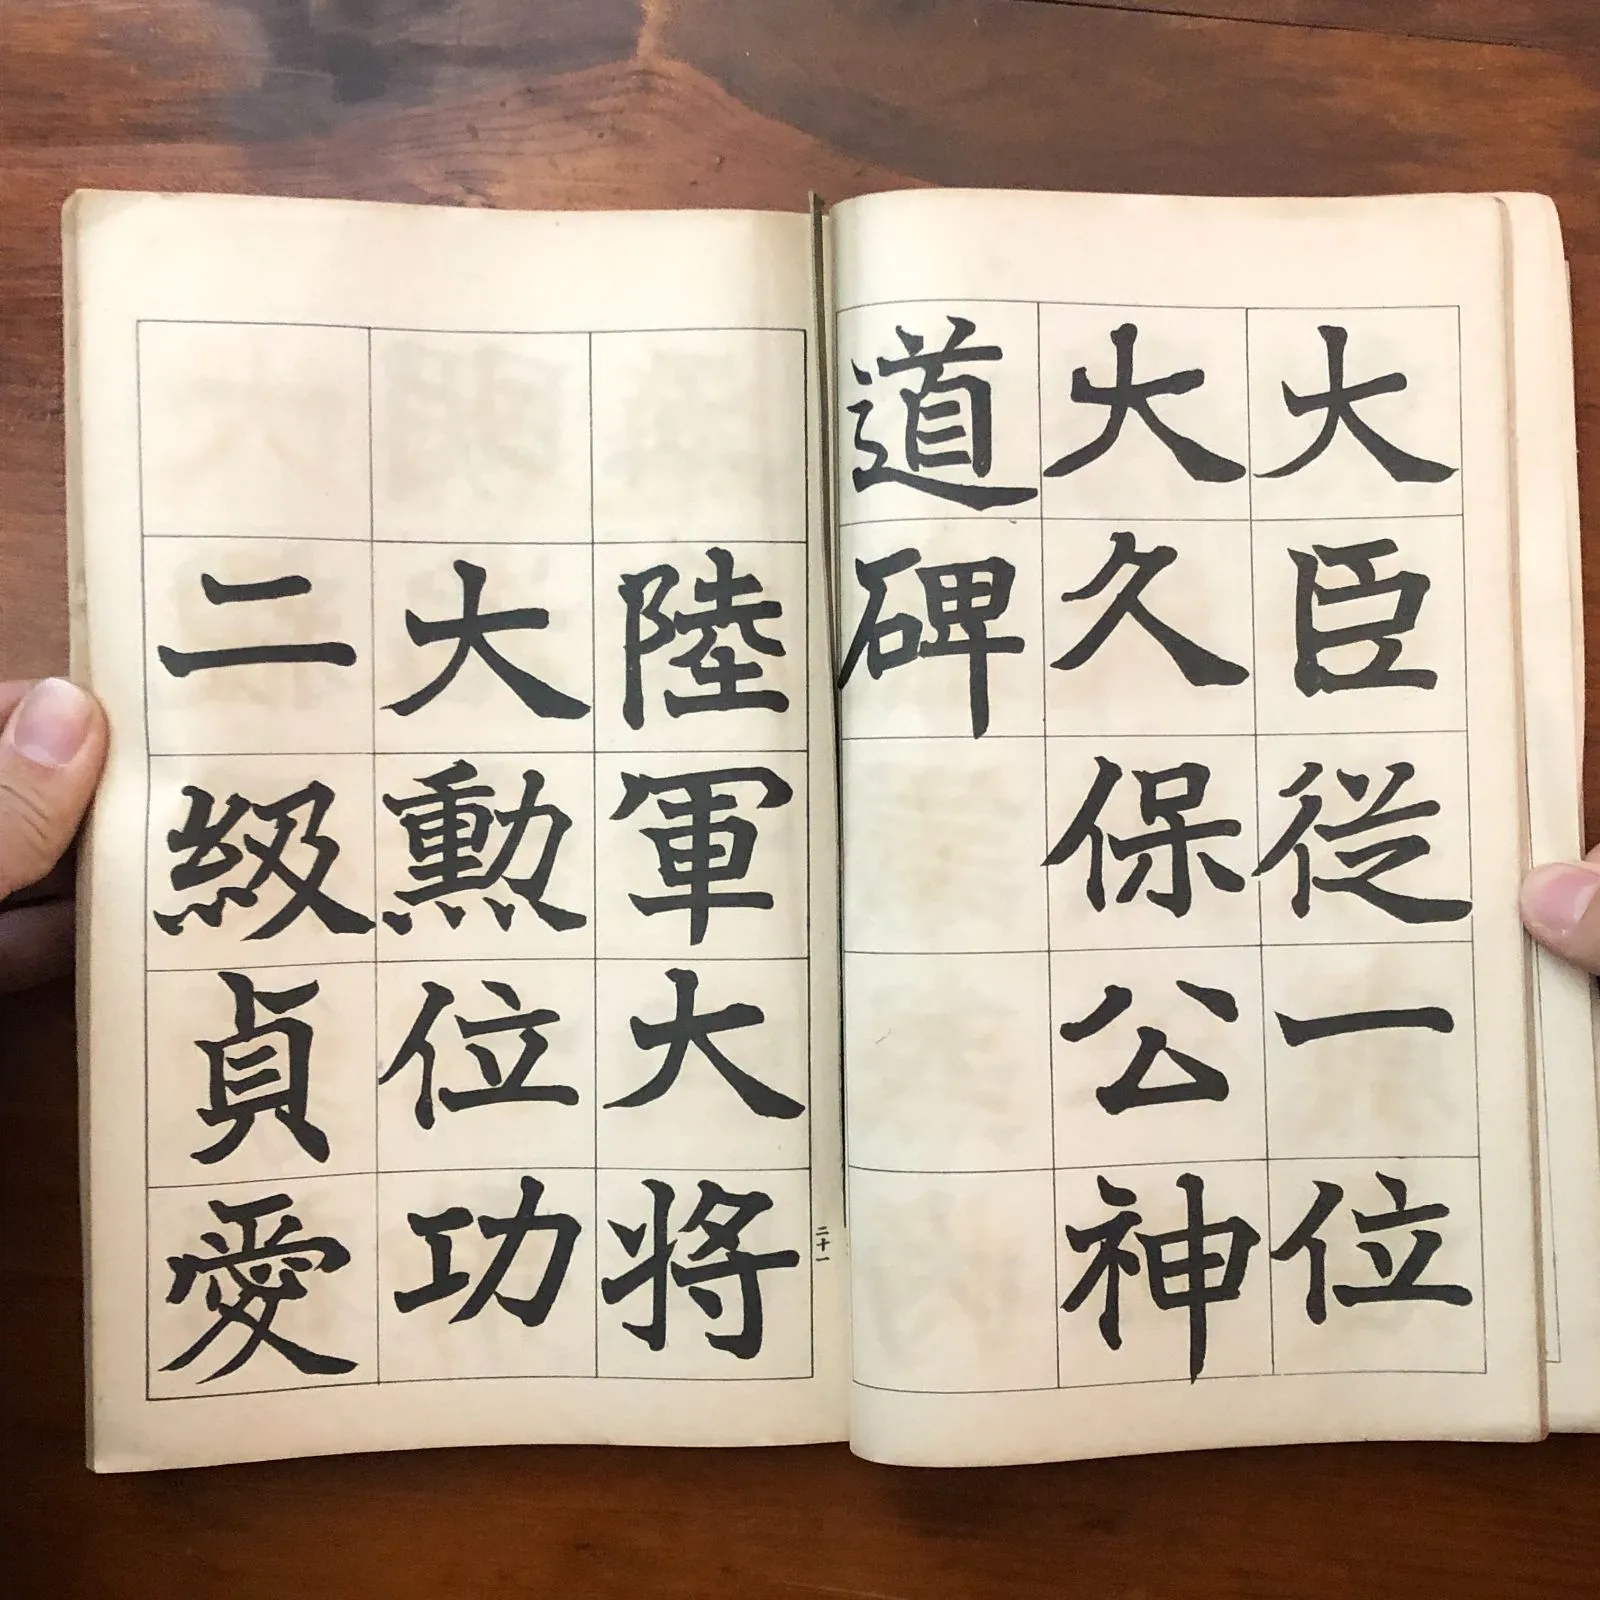 大臣従一位
大久保公神
道碑
陸軍大将
大勲位功
二級貞愛
二十一